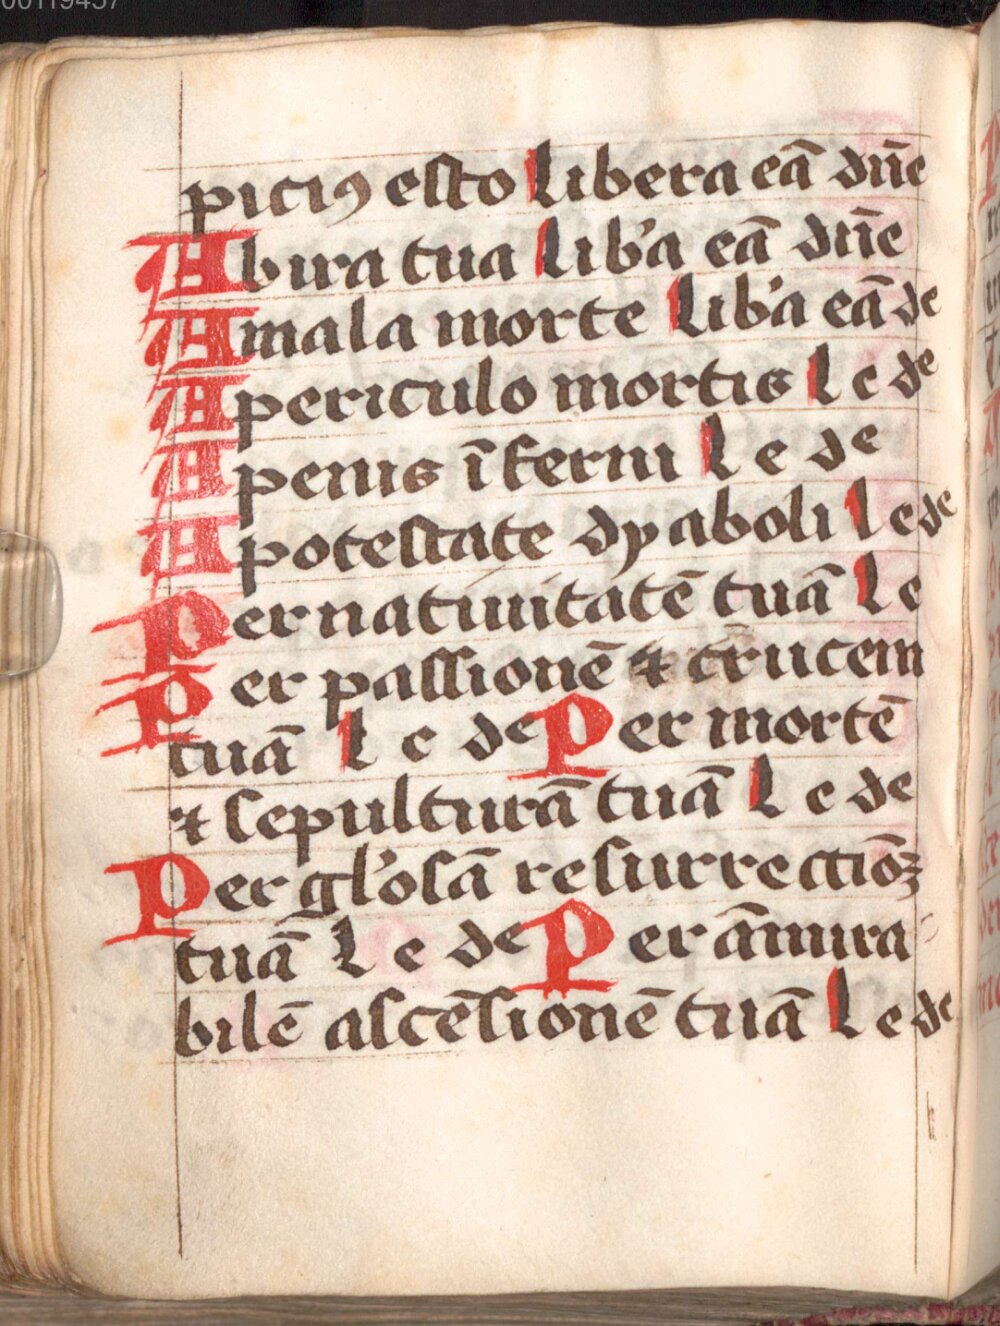 piciꝰ esto Libera eā dn̄e
Ab ira tua Lib'a eā dn̄e
A mala morte Lib'a eā de
A periculo mortis L e de
A penis īferni L e de
A potestate dyaboli L e de
Per natiuitatē tuā L e
Per passionē ⁊ crucem
tuā L e de Per mortē
⁊ sepulturā tuā L e de
Per gl'osā resurrectiōꝫ
tuā L e de Per āmira
bilē ascēsionē tuā L e de